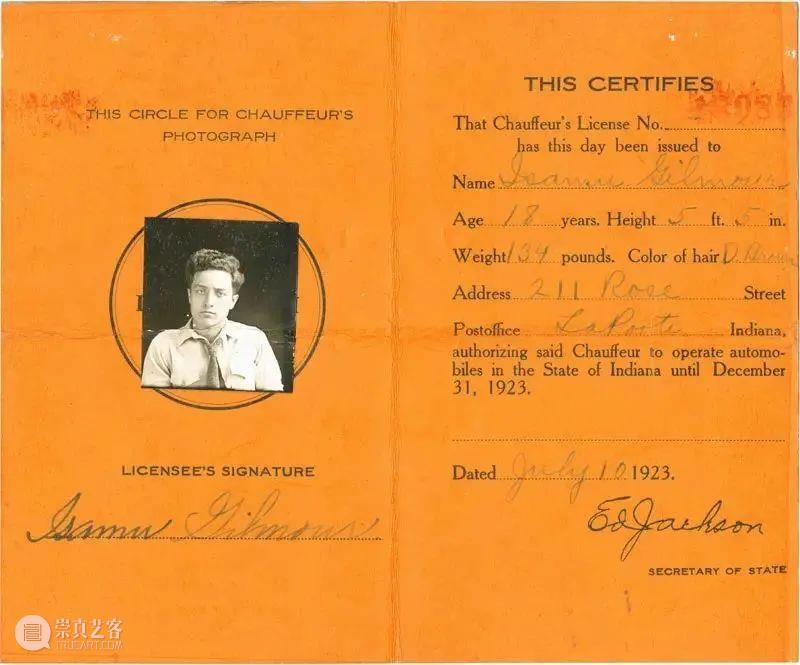 THIS CIRCLE FOR CHAUFFEUR'S
PHOTOGRAPH
LICENSEE'S SIGNATURE
Isamu Gilmour
THIS CERTIFIES
That Chauffeur's License No.
has this day been issued to
Name Isamu Gilmour
Age 18 years. Height 5 ft. 5 in.
Weight 134 pounds. Color of hair D. Brown
Address 211 Rose Street
Postoffice LaPorte Indiana,
authorizing said Chauffeur to operate automo-
biles in the State of Indiana until December
31, 1923.
Dated July 10 1923.
Ed Jackson
SECRETARY OF STATE
崇真艺客
TRUEART.COM